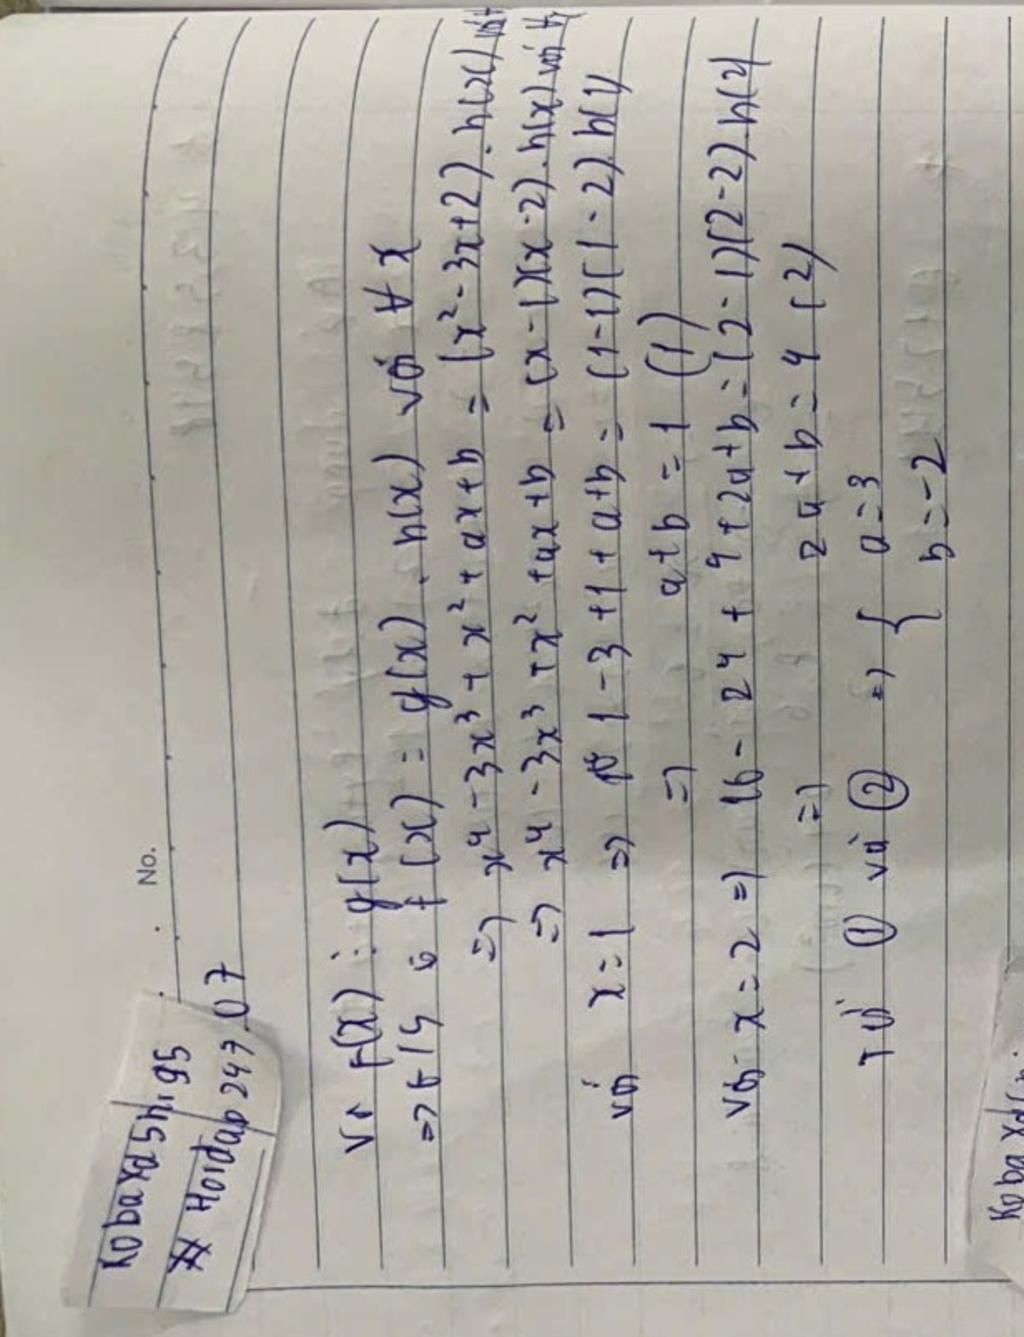 No.
Kobaxdshi95
Hoidap247.07
Vì f(x) ⋮ g(x)
=> f(x) = g(x) . h(x) với ∀ x
=> x⁴ - 3x³ + x² + ax + b = (x² - 3x + 2) . h(x) với
=> x⁴ - 3x³ + x² + ax + b = (x - 1)(x - 2) . h(x) với ∀
với x = 1 => 1 - 3 + 1 + a + b = (1 - 1)(1 - 2) . h(1)
=> a + b = 1 (1)
với x = 2 => 16 - 24 + 4 + 2a + b = (2 - 1)(2 - 2) . h(2)
=> 2a + b = 4 (2)
Từ ① và ② => { a = 3
b = -2